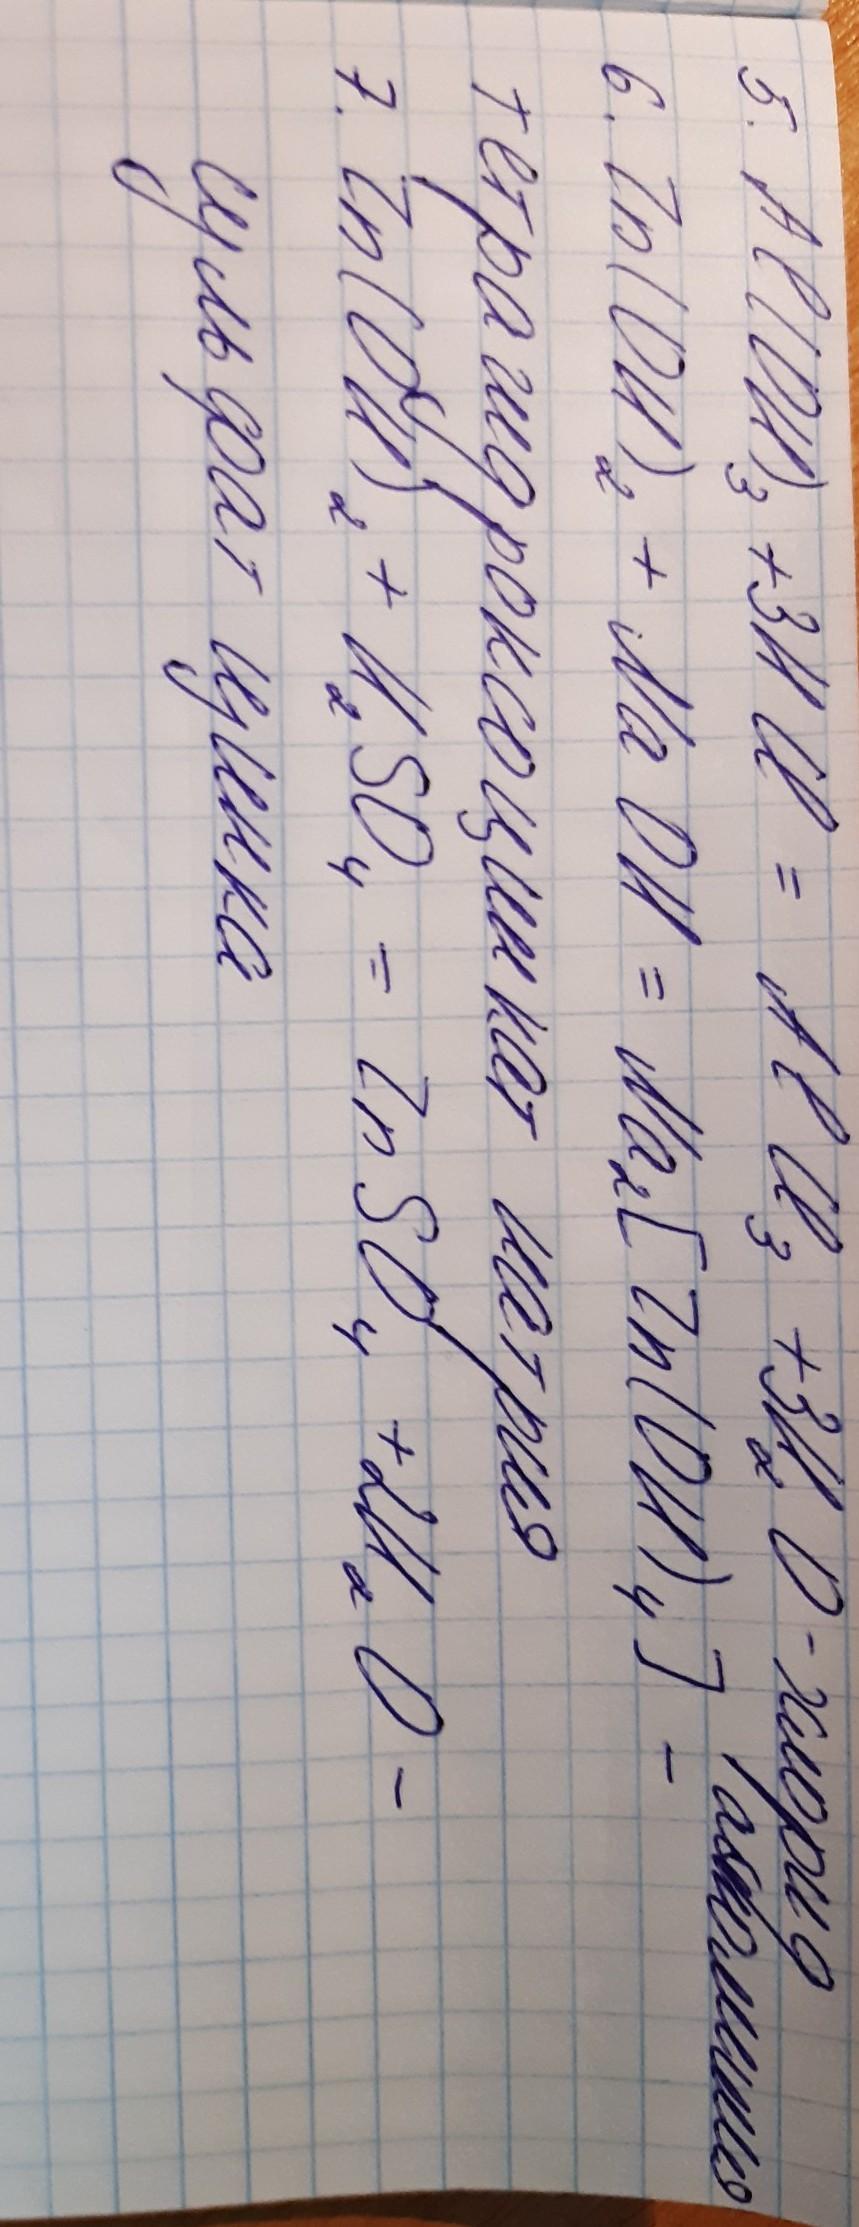 5. Al(OH)₃ + 3HCl = AlCl₃ + 3H₂O - хлорид
алюминия
6. Zn(OH)₂ + NaOH = Na₂[Zn(OH)₄] -
тетрагидроксоцинкат натрия
7. Zn(OH)₂ + H₂SO₄ = ZnSO₄ + 2H₂O -
сульфат цинка